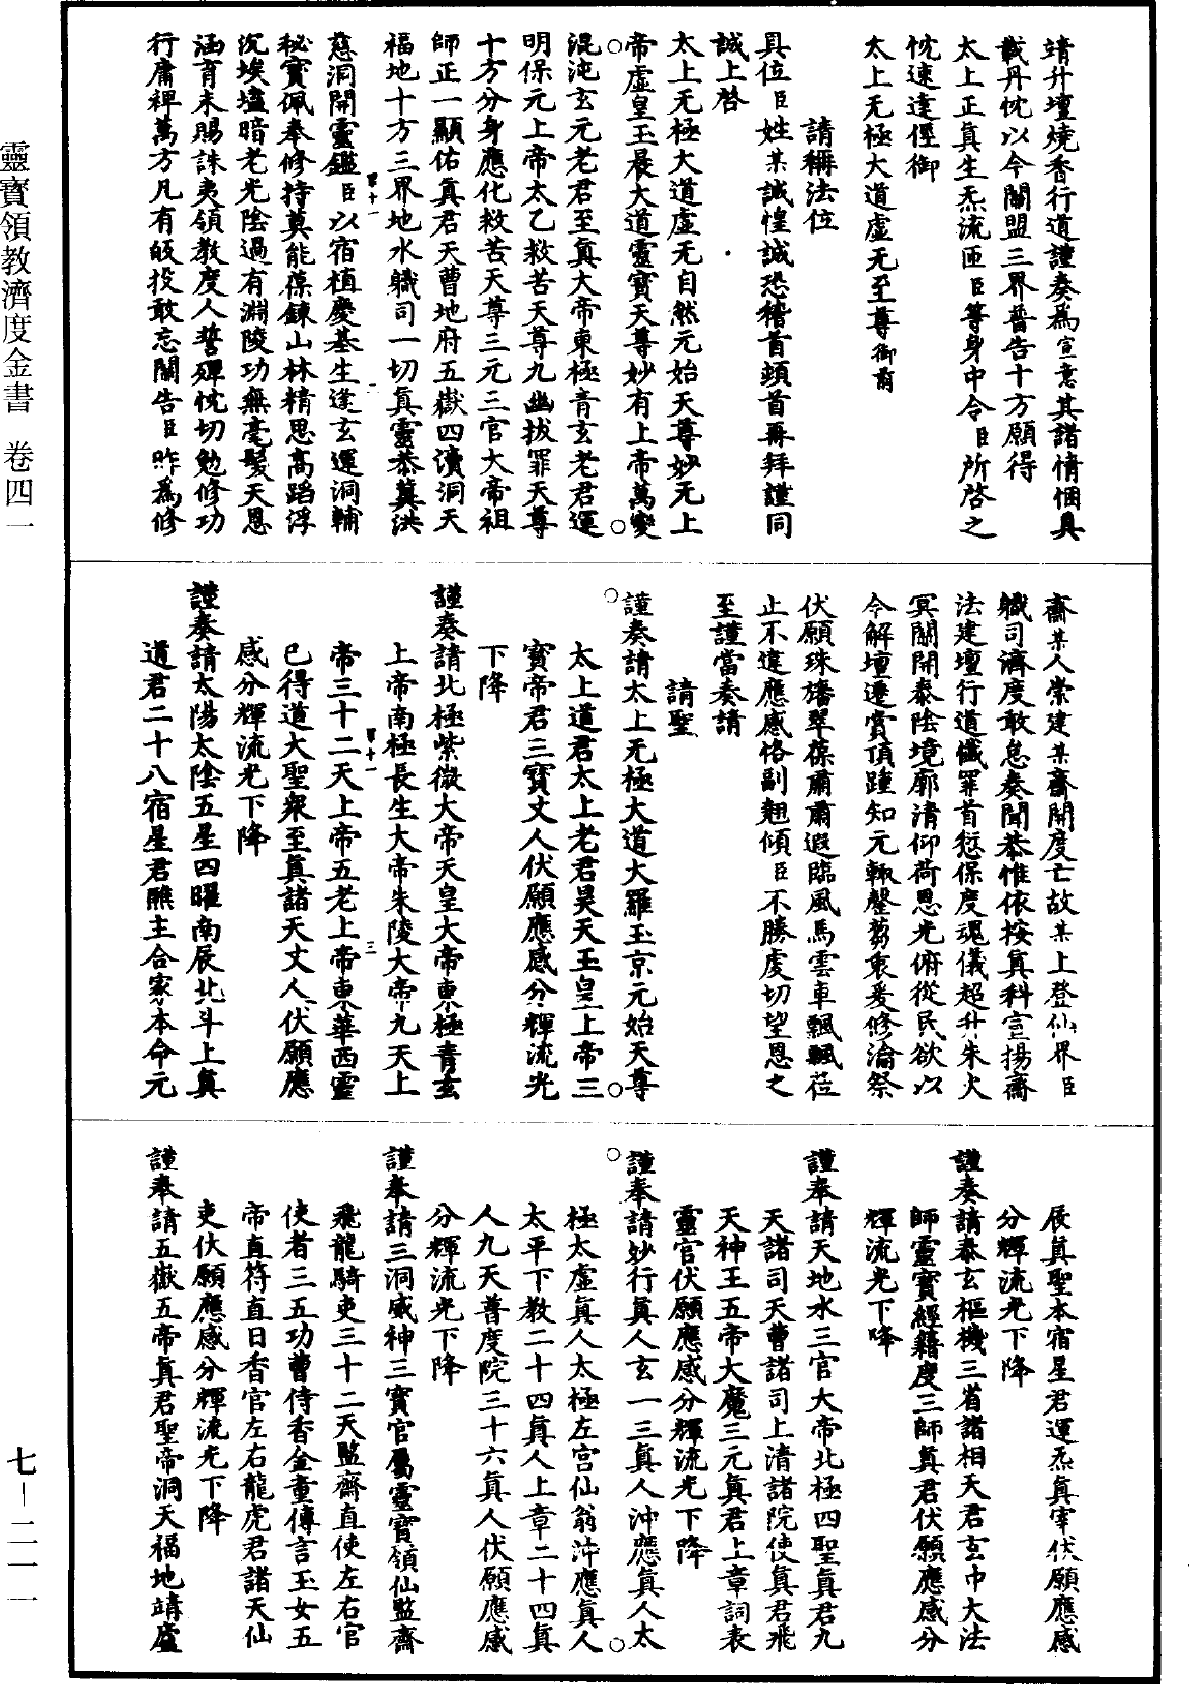 靖升壇燒香行道謹奏爲宣意其諸情悃具
載丹忱以今關盟三界普告十方願得
太上正真生炁流匝臣等身中令臣所啓之
忱速達徑御
太上无極大道虛无至尊御前
請稱法位
具位臣姓某誠惶誠恐稽首頓首再拜謹同
誠上啓
太上无極大道虛无自然元始天尊妙无上
帝虛皇玉晨大道靈寶天尊妙有上帝萬變
混沌玄元老君至真大帝東極青玄老君運
明保元上帝太乙救苦天尊九幽拔罪天尊
十方分身應化救苦天尊三元三官大帝祖
師正一顯佑真君天曹地府五嶽四瀆洞天
福地十方三界地水職司一切真靈恭冀洪
慈洞開靈鑑臣以宿植慶基生逢玄運洞輔
秘寶佩奉修持莫能葆鍊山林精思高蹈浮
沉埃壒暗老光陰過有淵陵功無毫髮天恩
涵育未賜誅夷領教度人誓殫忱切勉修功
行庸裨萬方凡有皈投敢忘關告臣昨爲修
齋某人崇建某齋開度亡故某上登仙界臣
職司濟度敢怠奏聞恭惟依按真科宣揚齋
法建壇行道懺罪首愆保度魂儀超升朱火
冥關開泰陰境廓清仰荷恩光俯從民欲以
今解壇遷賞頂踵知元輙罄芻衷爰修淪祭
伏願珠旛翠葆肅肅遐臨風馬雲車飄飄莅
止不違應感恪副翹傾臣不勝虔切望恩之
至謹當奏請
請聖
謹奏請太上无極大道大羅玉京元始天尊
太上道君太上老君昊天玉皇上帝三
寶帝君三寶丈人伏願應感分輝流光
下降
謹奏請北極紫微大帝天皇大帝東極青玄
上帝南極長生大帝朱陵大帝九天上
帝三十二天上帝五老上帝東華西靈
已得道大聖衆至真諸天丈人伏願應
感分輝流光下降
謹奏請太陽太陰五星四曜南辰北斗上真
道君二十八宿星君醮主合家本命元
辰真聖本宿星君運炁真宰伏願應感
分輝流光下降
謹奏請泰玄樞機三省諸相天君玄中大法
師靈寶經籍度三師真君伏願應感分
輝流光下降
謹奉請天地水三官大帝北極四聖真君九
天諸司天曹諸司上清諸院使真君飛
天神王五帝大魔三元真君上章詞表
靈官伏願應感分輝流光下降
謹奉請妙行真人玄一三真人沖應真人太
極太虛真人太極左宫仙翁沖應真人
太平下教二十四真人上章二十四真
人九天普度院三十六真人伏願應感
分輝流光下降
謹奉請三洞威神三寶官屬靈寶領仙監齋
飛龍騎吏三十二天監齋直使左右官
使者三五功曹侍香金童傳言玉女五
帝直符直日香官左右龍虎君諸天仙
吏伏願應感分輝流光下降
謹奉請五嶽五帝真君聖帝洞天福地靖廬
靈寶領教濟度金書 卷四一
七—二一一